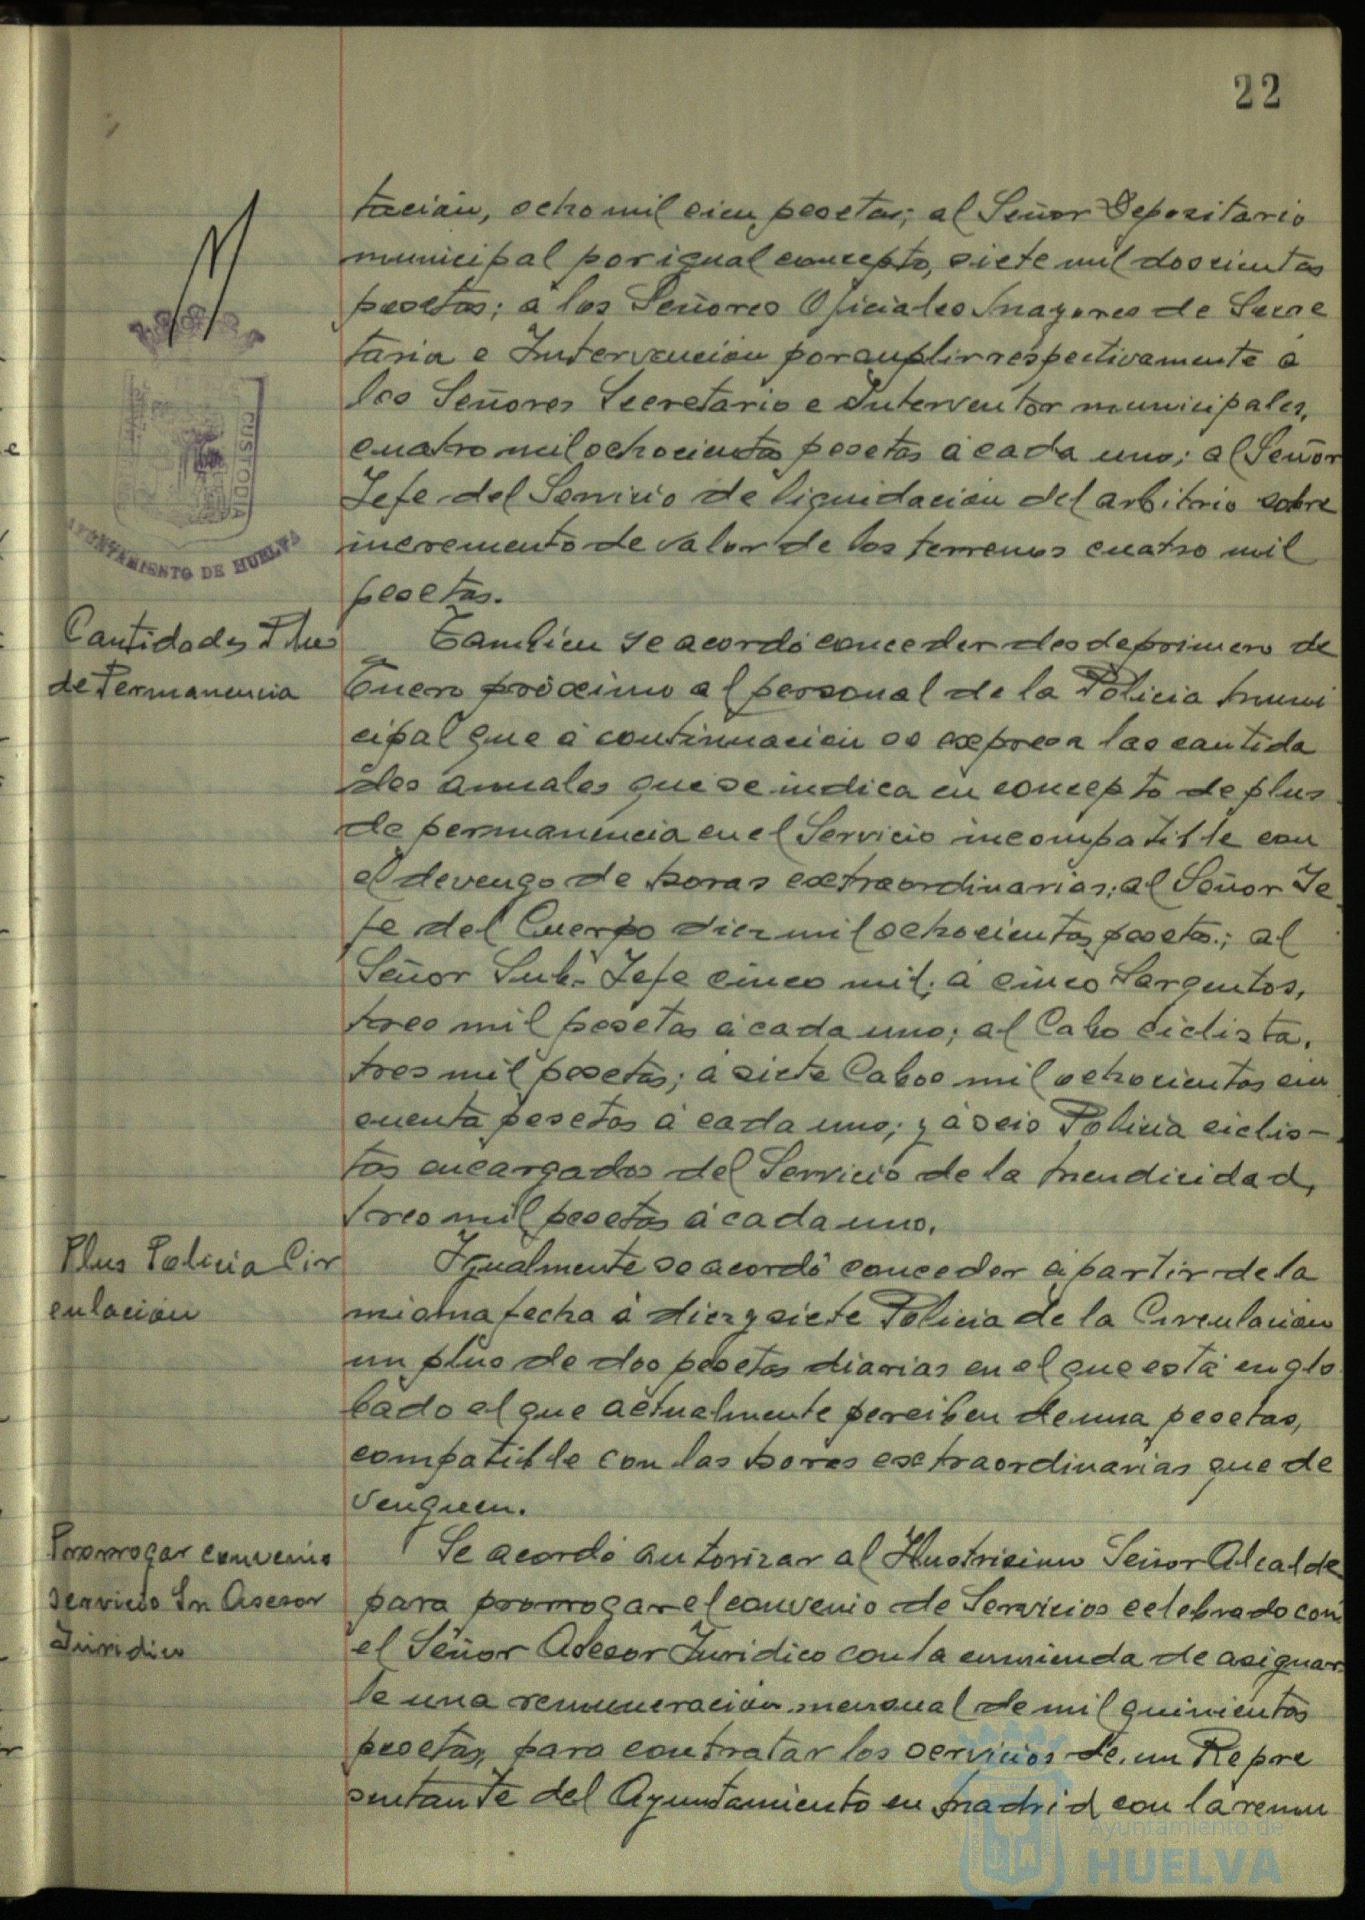 22
tacion, ocho mil cien pesetas; al Señor Depositario
municipal por igual concepto, siete mil doscientas
pesetas; á los Señores Oficiales Mayores de Secre
taria e Intervención por suplir respectivamente á
los Señores Secretario e Interventor municipales,
cuatro mil ochocientas pesetas á cada uno; al Señor
Jefe del Servicio de liquidación del arbitrio sobre
incremento de valor de los terrenos cuatro mil
pesetas.
Cantidades Plus
de Permanencia
Tambien se acordó conceder desde primero de
Enero próximo al personal de la Policia Muni
cipal que á continuación se expresa las cantida
des anuales que se indica en concepto de plus
de permanencia en el Servicio incompatible con
el devengo de horas extraordinarias; al Señor Je
fe del Cuerpo diez mil ochocientas pesetas; al
Señor Sub-Jefe cinco mil; á cinco Sargentos,
tres mil pesetas á cada uno; al Cabo ciclista,
tres mil pesetas; á siete Cabos mil ochocientas cin
cuenta pesetas á cada uno; y á seis Policia ciclis-
tas encargados del Servicio de la Mendicidad,
tres mil pesetas á cada uno.
Plus Policia Cir
culación
Igualmente se acordó conceder á partir de la
misma fecha á diez y siete Policia de la Circulación
un plus de dos pesetas diarias en el que está englo
bado el que actualmente perciben de una pesetas,
compatible con las horas extraordinarias que de
venguen.
Prorrogar convenio
servicio Sr Asesor
Juridico
Se acordó autorizar al Ilustrisimo Señor Alcalde
para prorrogar el convenio de Servicios celebrado con
el Señor Asesor Juridico con la enmienda de asignar
le una remuneración mensual de mil quinientas
pesetas, para contratar los servicios de un Repre
sentante del Ayuntamiento en Madrid con la remu
CUSTODIA
AYUNTAMIENTO DE HUELVA
Ayuntamiento de
HUELVA